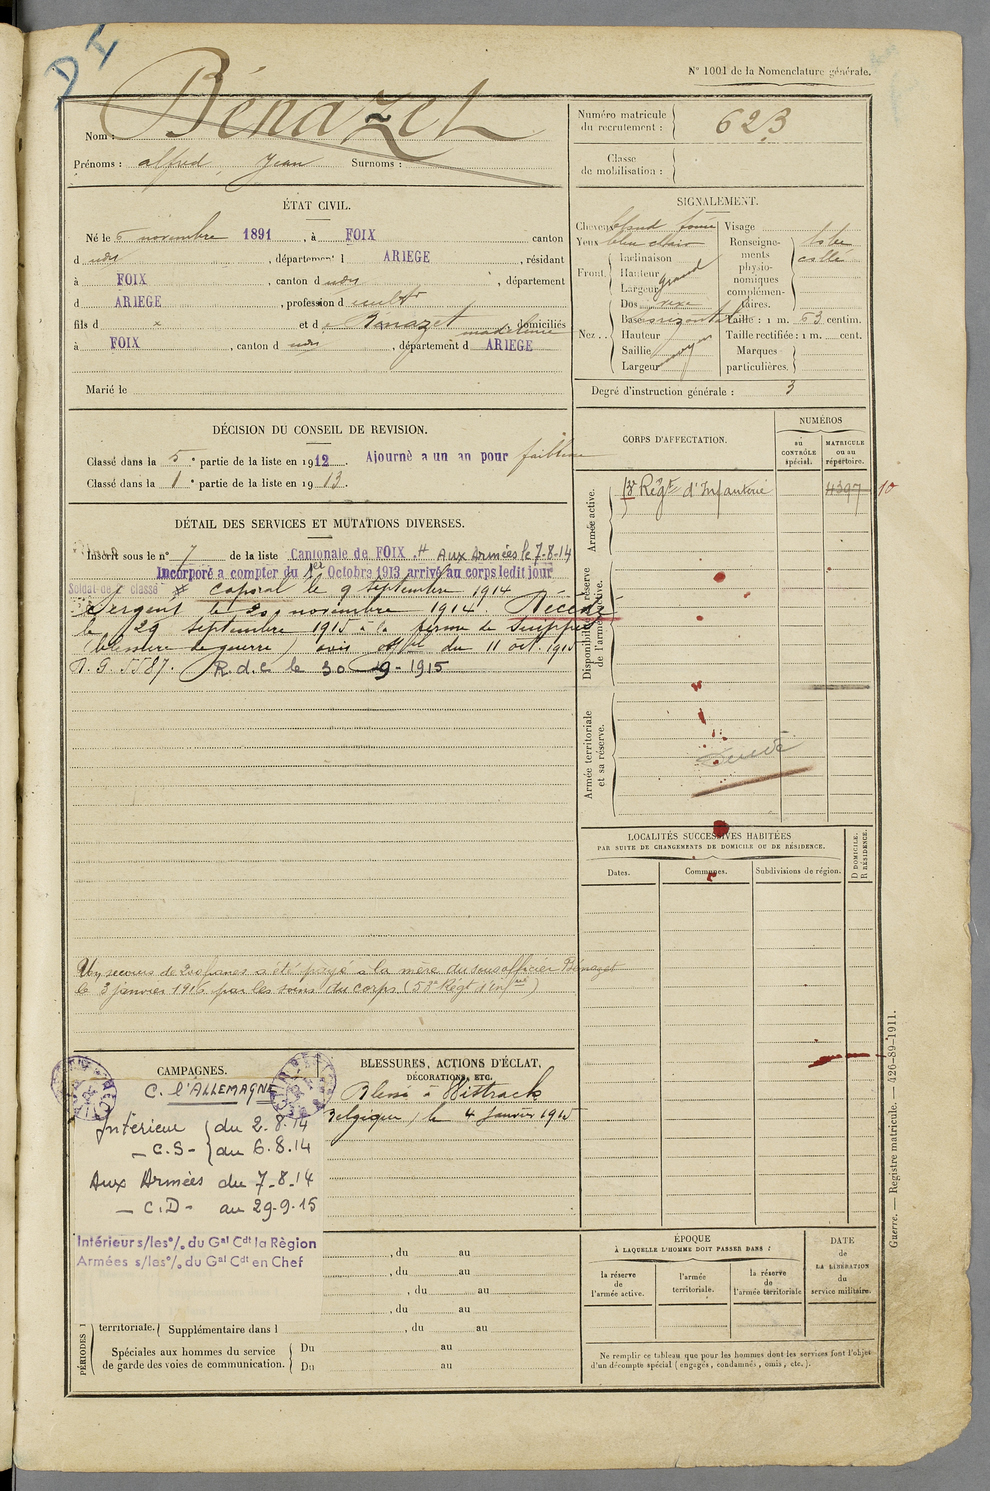 D I
N° 1001 de la Nomenclature générale.
Nom : Bénazet
Prénoms : alfred Jean Surnoms :
Numéro matricule du recrutement : 623
Classe de mobilisation :
ÉTAT CIVIL.
Né le 6 novembre 1891, à FOIX canton
d udit, département d ARIEGE, résidant
à FOIX, canton d udit, département
d ARIEGE, profession d
fils d x et d e Bénazet madeleine domiciliés
à FOIX, canton d udit, département d ARIEGE
Marié le
SIGNALEMENT.
Cheveux blond foncé
Yeux bleu clair
Front. Inclinaison
Hauteur grand
Largeur
Nez.. Dos
Base
Hauteur
Saillie
Largeur
Visage
Renseignements physionomiques complémentaires.
Taille : 1 m. 63 centim.
Taille rectifiée : 1 m. cent.
Marques particulières.
Degré d'instruction générale : 3
DÉCISION DU CONSEIL DE REVISION.
Classé dans la 5e partie de la liste en 1912. Ajourné a un an pour faiblesse
Classé dans la 1e partie de la liste en 1913.
DÉTAIL DES SERVICES ET MUTATIONS DIVERSES.
Inscrit sous le n° 7 de la liste Cantonale de FOIX. Aux Armées le 7-8-14
Incorporé a compter du 1er Octobre 1913 arrivé au corps ledit jour
Soldat de classe caporal le 9 septembre 1914
Sergent le 20 novembre 1914 Décédé
le 29 septembre 1915 à la ferme de Suippes
(blessure de guerre) avis du 11 oct. 1915
R.d.c le 30-9-1915
Un secours de 200 francs a été payé à la mère du sous officier Bénazet
le 3 janvier 1916 par les soins du corps (53e Régt d'Infrie)
CORPS D'AFFECTATION.
NUMÉROS
au CONTRÔLE spécial.
MATRICULE ou au répertoire.
Armée active.
Régt d'Infanterie 4397 10
Disponibilité et réserve de l'armée active.
Armée territoriale et sa réserve.
LOCALITÉS SUCCESSIVES HABITÉES
PAR SUITE DE CHANGEMENTS DE DOMICILE OU DE RÉSIDENCE.
Dates. Communes. Subdivisions de région. D DOMICILE. R RÉSIDENCE.
CAMPAGNES.
C. l'ALLEMAGNE
Intérieur du 2.8.14
- C.S - au 6.8.14
Aux Armées du 7-8-14
- C.D - au 29-9-15
Intérieur s/les°/. du Gal Cdt la Règion
Armées s/les°/. du Gal Cdt en Chef
BLESSURES, ACTIONS D'ÉCLAT,
DÉCORATIONS, ETC.
Blessé à
Belgique) le 4 janvier 1915
, du au
, du au
, du au
, du au
PÉRIODES
territoriale. Supplémentaire dans l , du au
Spéciales aux hommes du service de garde des voies de communication. Du au
Du au
ÉPOQUE
À LAQUELLE L'HOMME DOIT PASSER DANS :
la réserve de l'armée active.
l'armée territoriale.
la réserve de l'armée territoriale
DATE de LA LIBÉRATION du service militaire.
Ne remplir ce tableau que pour les hommes dont les services font l'objet
d'un décompte spécial (engagés, condamnés, omis, etc.).
Guerre. — Registre matricule. — 426-89-1911.